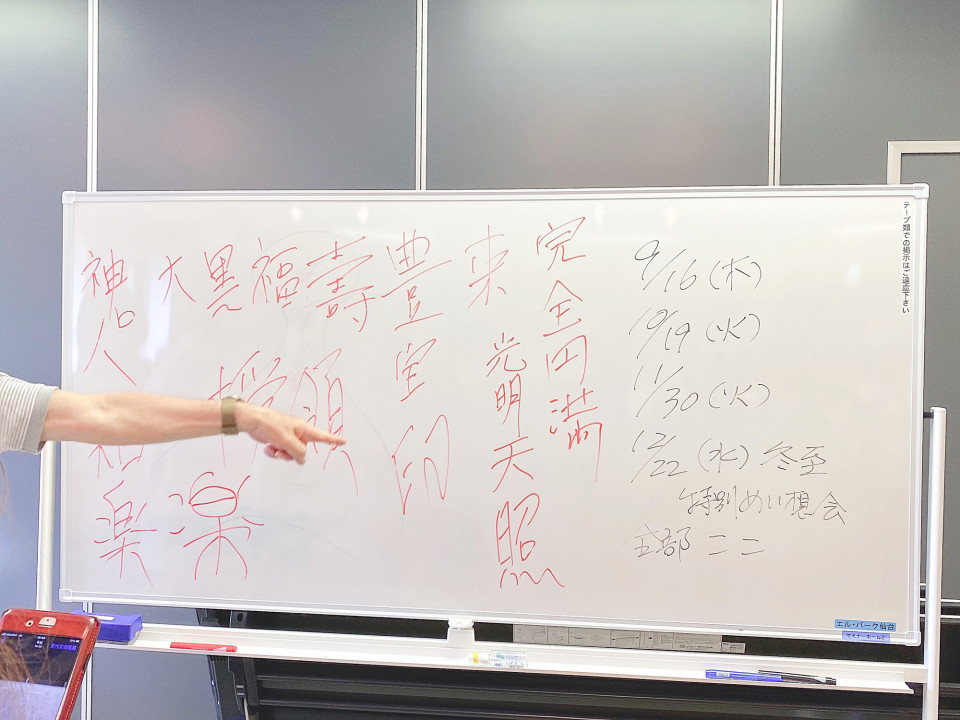 完全円満
来
光明天照
豊
宝印
壽
福
黒
大
領
授
楽
神人
和楽
9/16(木)
10/19(火)
11/30(火)
12/22(水)冬至
特別めい想会
全部ココ
テープ類での掲示はご遠慮下さい
エル・パーク仙台
セミナーホール2